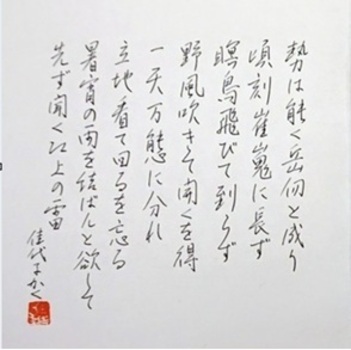 勢は能く岳仞と成り
頃刻崔嵬に長ず
瞑鳥飛びて到らず
野風吹きて開くを得
一天万態に分れ
立地看て回るを忘る
暑宵の雨を結ばんと欲して
先ず聞く江上の雷
佳代子かく